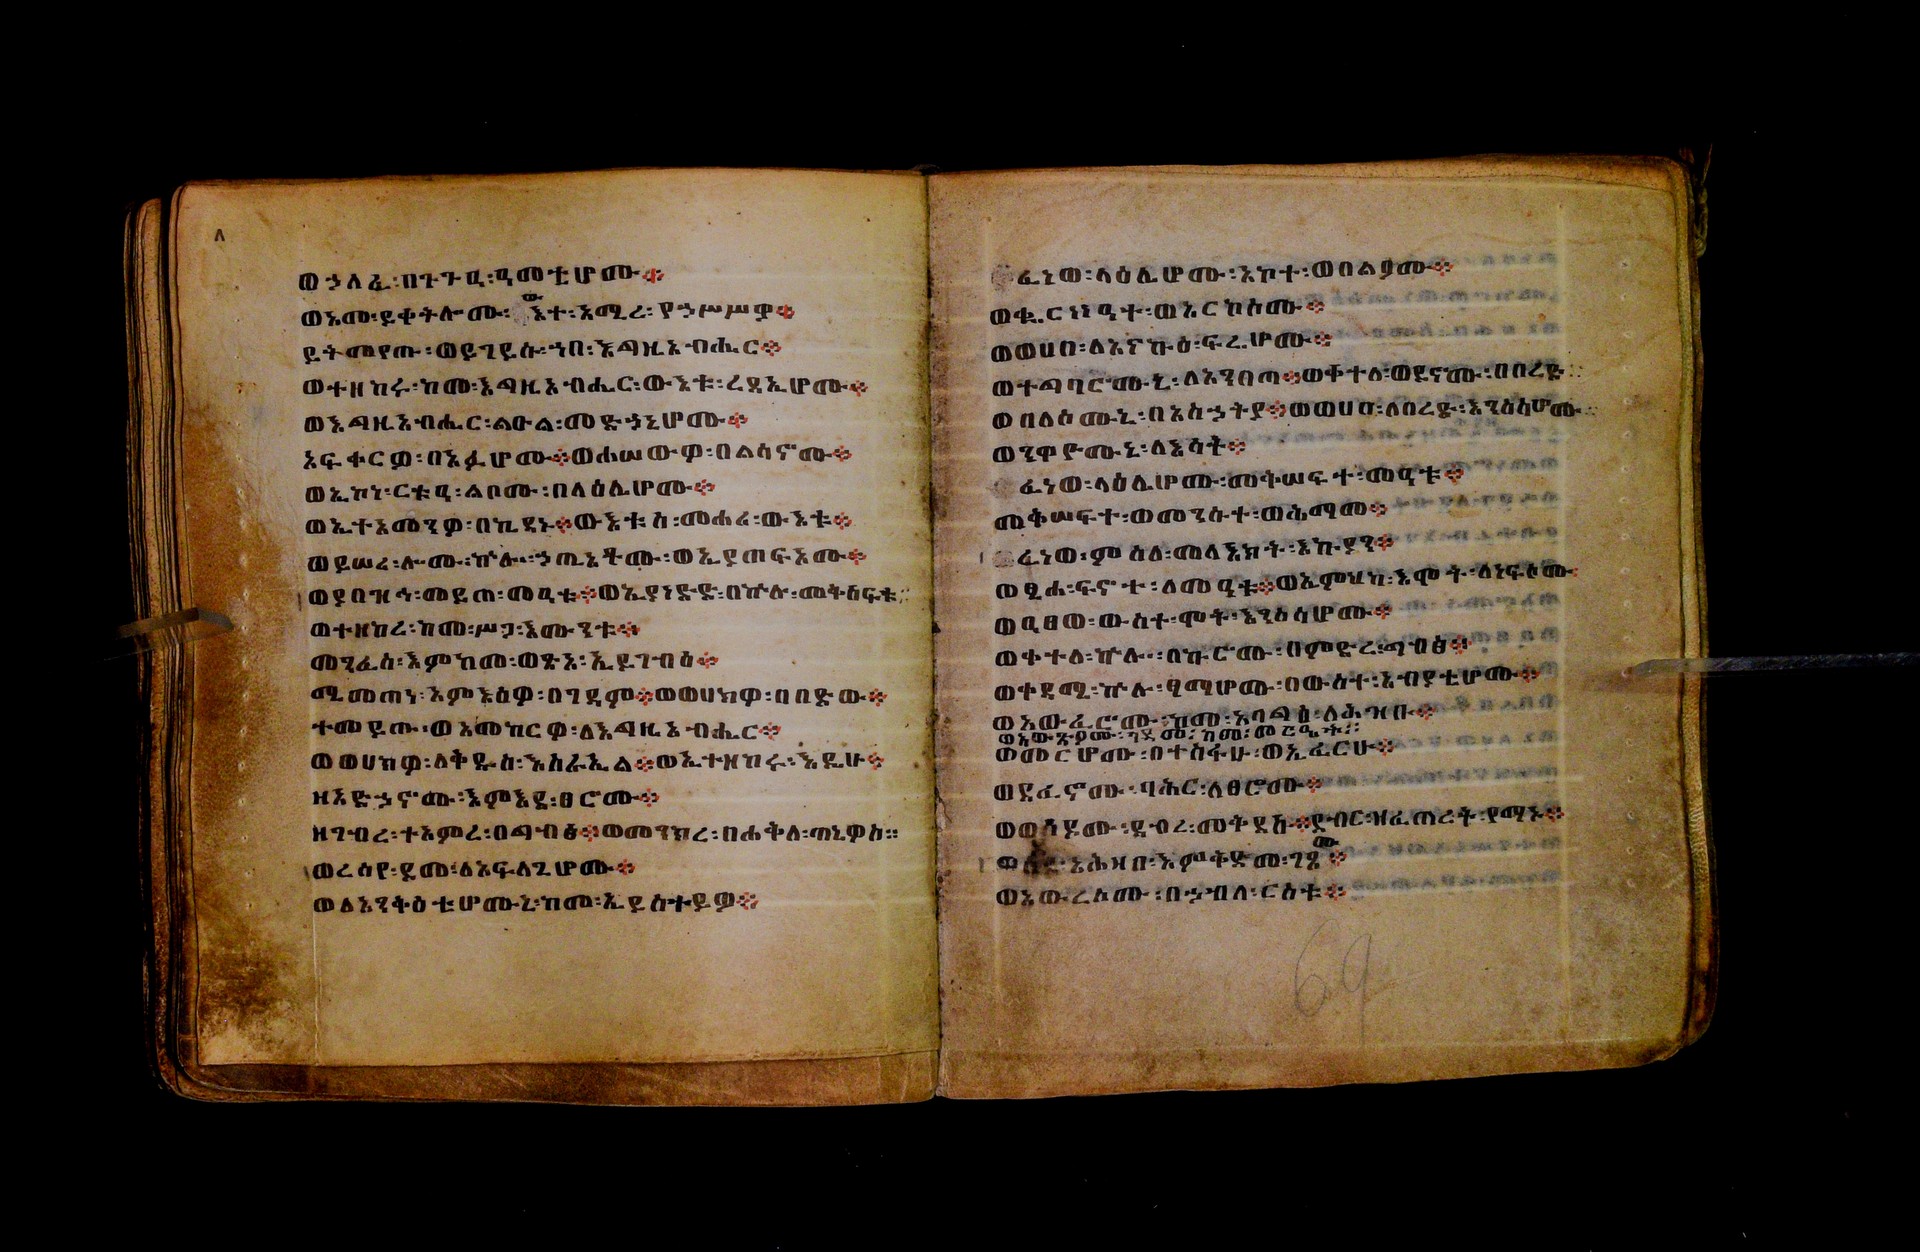 ወኃለፈ፡በጉጉዒ፡ዓመቲሆሙ፨
ወአመ፡ይቀትሎሙ፡ውእተ፡አሚረ፡የኃሥሥዎ፨
ይትመየጡ፡ወይገይሱ፡ኀበ፡እግዚአብሔር፨
ወተዘከሩ፡ከመ፡እግዚአብሔር፡ውእቱ፡ረዳኢሆሙ፨
ወእግዚአብሔር፡ልዑል፡መድኃኒሆሙ፨
አፍቀርዎ፡በአፉሆሙ፨ወሐሠውዎ፡በልሳኖሙ፨
ወኢኮነ፡ርቱዒ፡ልቦሙ፡በላዕሌሆሙ፨
ወኢተአመንዎ፡በኪዳኑ፨ውእቱሰ፡መሐሪ፡ውእቱ፨
ወይሠሪ፡ሎሙ፡ኵሎ፡ኃጢአቶሙ፡ወኢያጠፍኦሙ፨
ወያበዝኅ፡መይጠ፡መዓቱ፨ወኢያነድድ፡በኵሉ፡መቅሠፍቱ፨
ወተዘከረ፡ከመ፡ሥጋ፡እሙንቱ፨
መንፈስ፡እምከመ፡ወፅአ፡ኢይገብዕ፨
ሚመጠነ፡አምዕዕዎ፡በገዳም፨ወወሀክዎ፡በበድው፨
ተመይጡ፡ወአመከርዎ፡ለእግዚአብሔር፨
ወወሀክዎ፡ለቅዱስ፡እስራኤል፨ወኢተዘከሩ፡እዴሁ፨
ዘአድኃኖሙ፡እምእደ፡ፀሮሙ፨
ዘገብረ፡ተአምረ፡በግብፅ፨ወመንክረ፡በሐቅለ፡ጣኔዎስ፨
ወረሰየ፡ደመ፡ለአፍላጊሆሙ፨
ወለአንቅዕቲሆሙኒ፡ከመ፡ኢይስተይዎ፨
ፈነወ፡ላዕሌሆሙ፡አኮተ፡ወበልዖሙ፨
ወቈርነነዓተ፡ወአርኰሰሙ፨
ወወሀቦ፡ለአናኵዕ፡ፍሬሆሙ፨
ወተግባሮሙኒ፡ለአንበጣ፨ወቀተለ፡ወይኖሙ፡በበረድ፨
ወበለሶሙኒ፡በአስኃትያ፨ወወሀቦ፡ለበረድ፡እንስሳሆሙ፨
ወንዋዮሙኒ፡ለእሳት፨
ፈነወ፡ላዕሌሆሙ፡መቅሠፍተ፡መዓቱ፨
መቅሠፍተ፡ወመንሱተ፡ወሕማመ፨
ፈነወ፡ምስለ፡መላእክት፡እኩያን፨
ወፄሐ፡ፍኖተ፡ለመዓቱ፨ወኢምህከ፡እሞት፡ለነፍሶሙ፨
ወዓፀወ፡ውስተ፡ሞት፡እንስሳሆሙ፨
ወቀተለ፡ኵሎ፡በኵሮሙ፡በምድረ፡ግብፅ፨
ወቀዳሜ፡ኵሉ፡ፃማሆሙ፡በውስተ፡አብያቲሆሙ፨
ወአውፈሮሙ፡ከመ፡አባግዕ፡ለሕዝቡ፨
ወአውጽኦሙ፡ገዳመ፡ከመ፡መርዔቱ፨
ወመርሆሙ፡በተስፋሁ፡ወኢፈርሁ፨
ወደፈኖሙ፡ባሕር፡ለፀሮሙ፨
ወወሰዶሙ፡ደብረ፡መቅደሱ፨ደብር፡ዝፈጠረት፡የማኑ፨
ወሰደደ፡አሕዛበ፡እምቅድመ፡ገጾሙ፨
ወአውረሰሙ፡በኃብለ፡ርስቱ፨
69